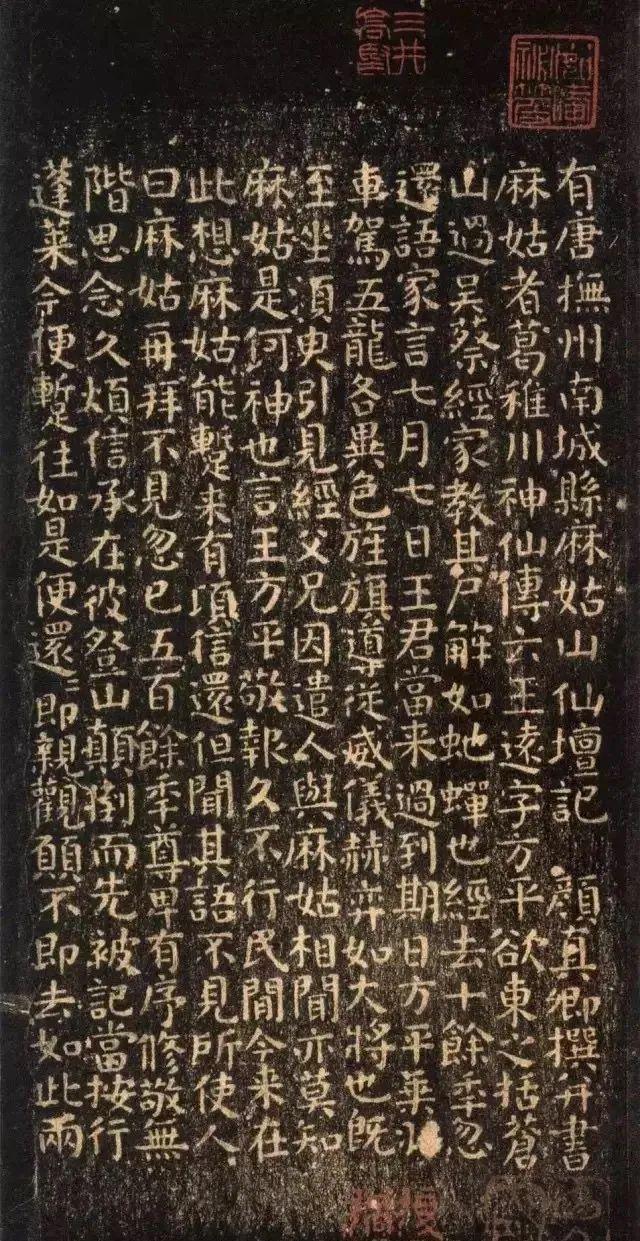 三井高堅
有唐撫州南城縣麻姑山仙壇記 顔真卿撰并書
麻姑者葛稚川神仙傳云王遠字方平欲東之括蒼
山過吴蔡經家教其尸解如虵蟬也經去十餘季忽
還語家言七月七日王君當来過到期日方平乗羽
車駕五龍各異色旌旗導從威儀赫弈如大將也既
至坐須臾引見經父兄因遣人與麻姑相聞亦莫知
麻姑是何神也言王方平敬報久不行民間今来在
此想麻姑能蹔来有頃信還但聞其語不見所使人
曰麻姑再拜不見忽已五百餘季尊卑有序修敬無
階思念久煩信承在彼登山顛倒而先被記當按行
蓬萊今便蹔往如是便還〻即親觀願不即去如此兩